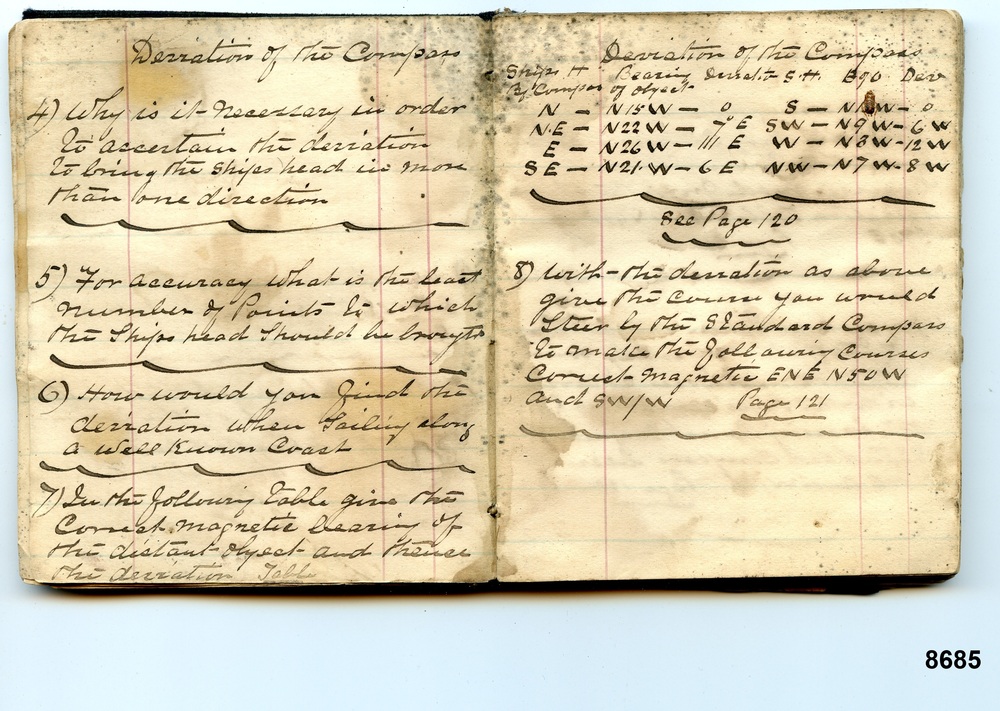 Deviation of the Compass
4) Why is it necessary in order
to accertain the deviation
to bring the ships head in more
than one direction
5) For accuracy what is the least
number of Points to which
the Ships head should be brought
6) How would you find the
deviation when Sailing along
a well known Coast
7) In the following table give the
Correct magnetic bearing of
the distant object and thence
the deviation Table
Deviation of the Compass
Ships H Bearing S.H. Bgo Dev
By Compass of object
N — N15W — 0 S — W — 0
N.E — N22W — 7° E SW — N9W — 6 W
E — N26W — 11 E W — N3W — 12 W
SE — N21.W — 6 E NW — N7W — 8 W
See Page 120
8) With the deviation as above
give the course you would
Steer by the Standard Compass
to make the following Courses
Correct magnetic ENE N50W
and SW/W Page 121
8685